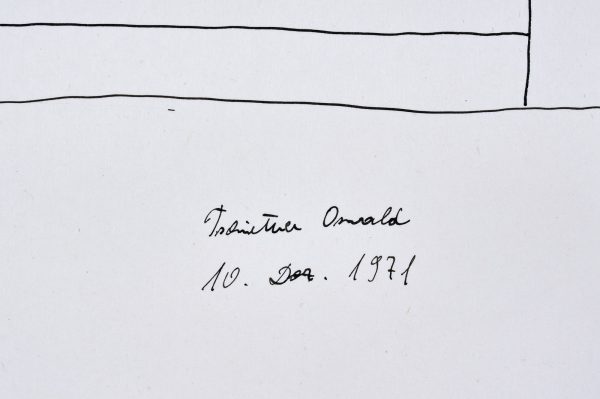 Tschirtner Oswald
10. Dez. 1971